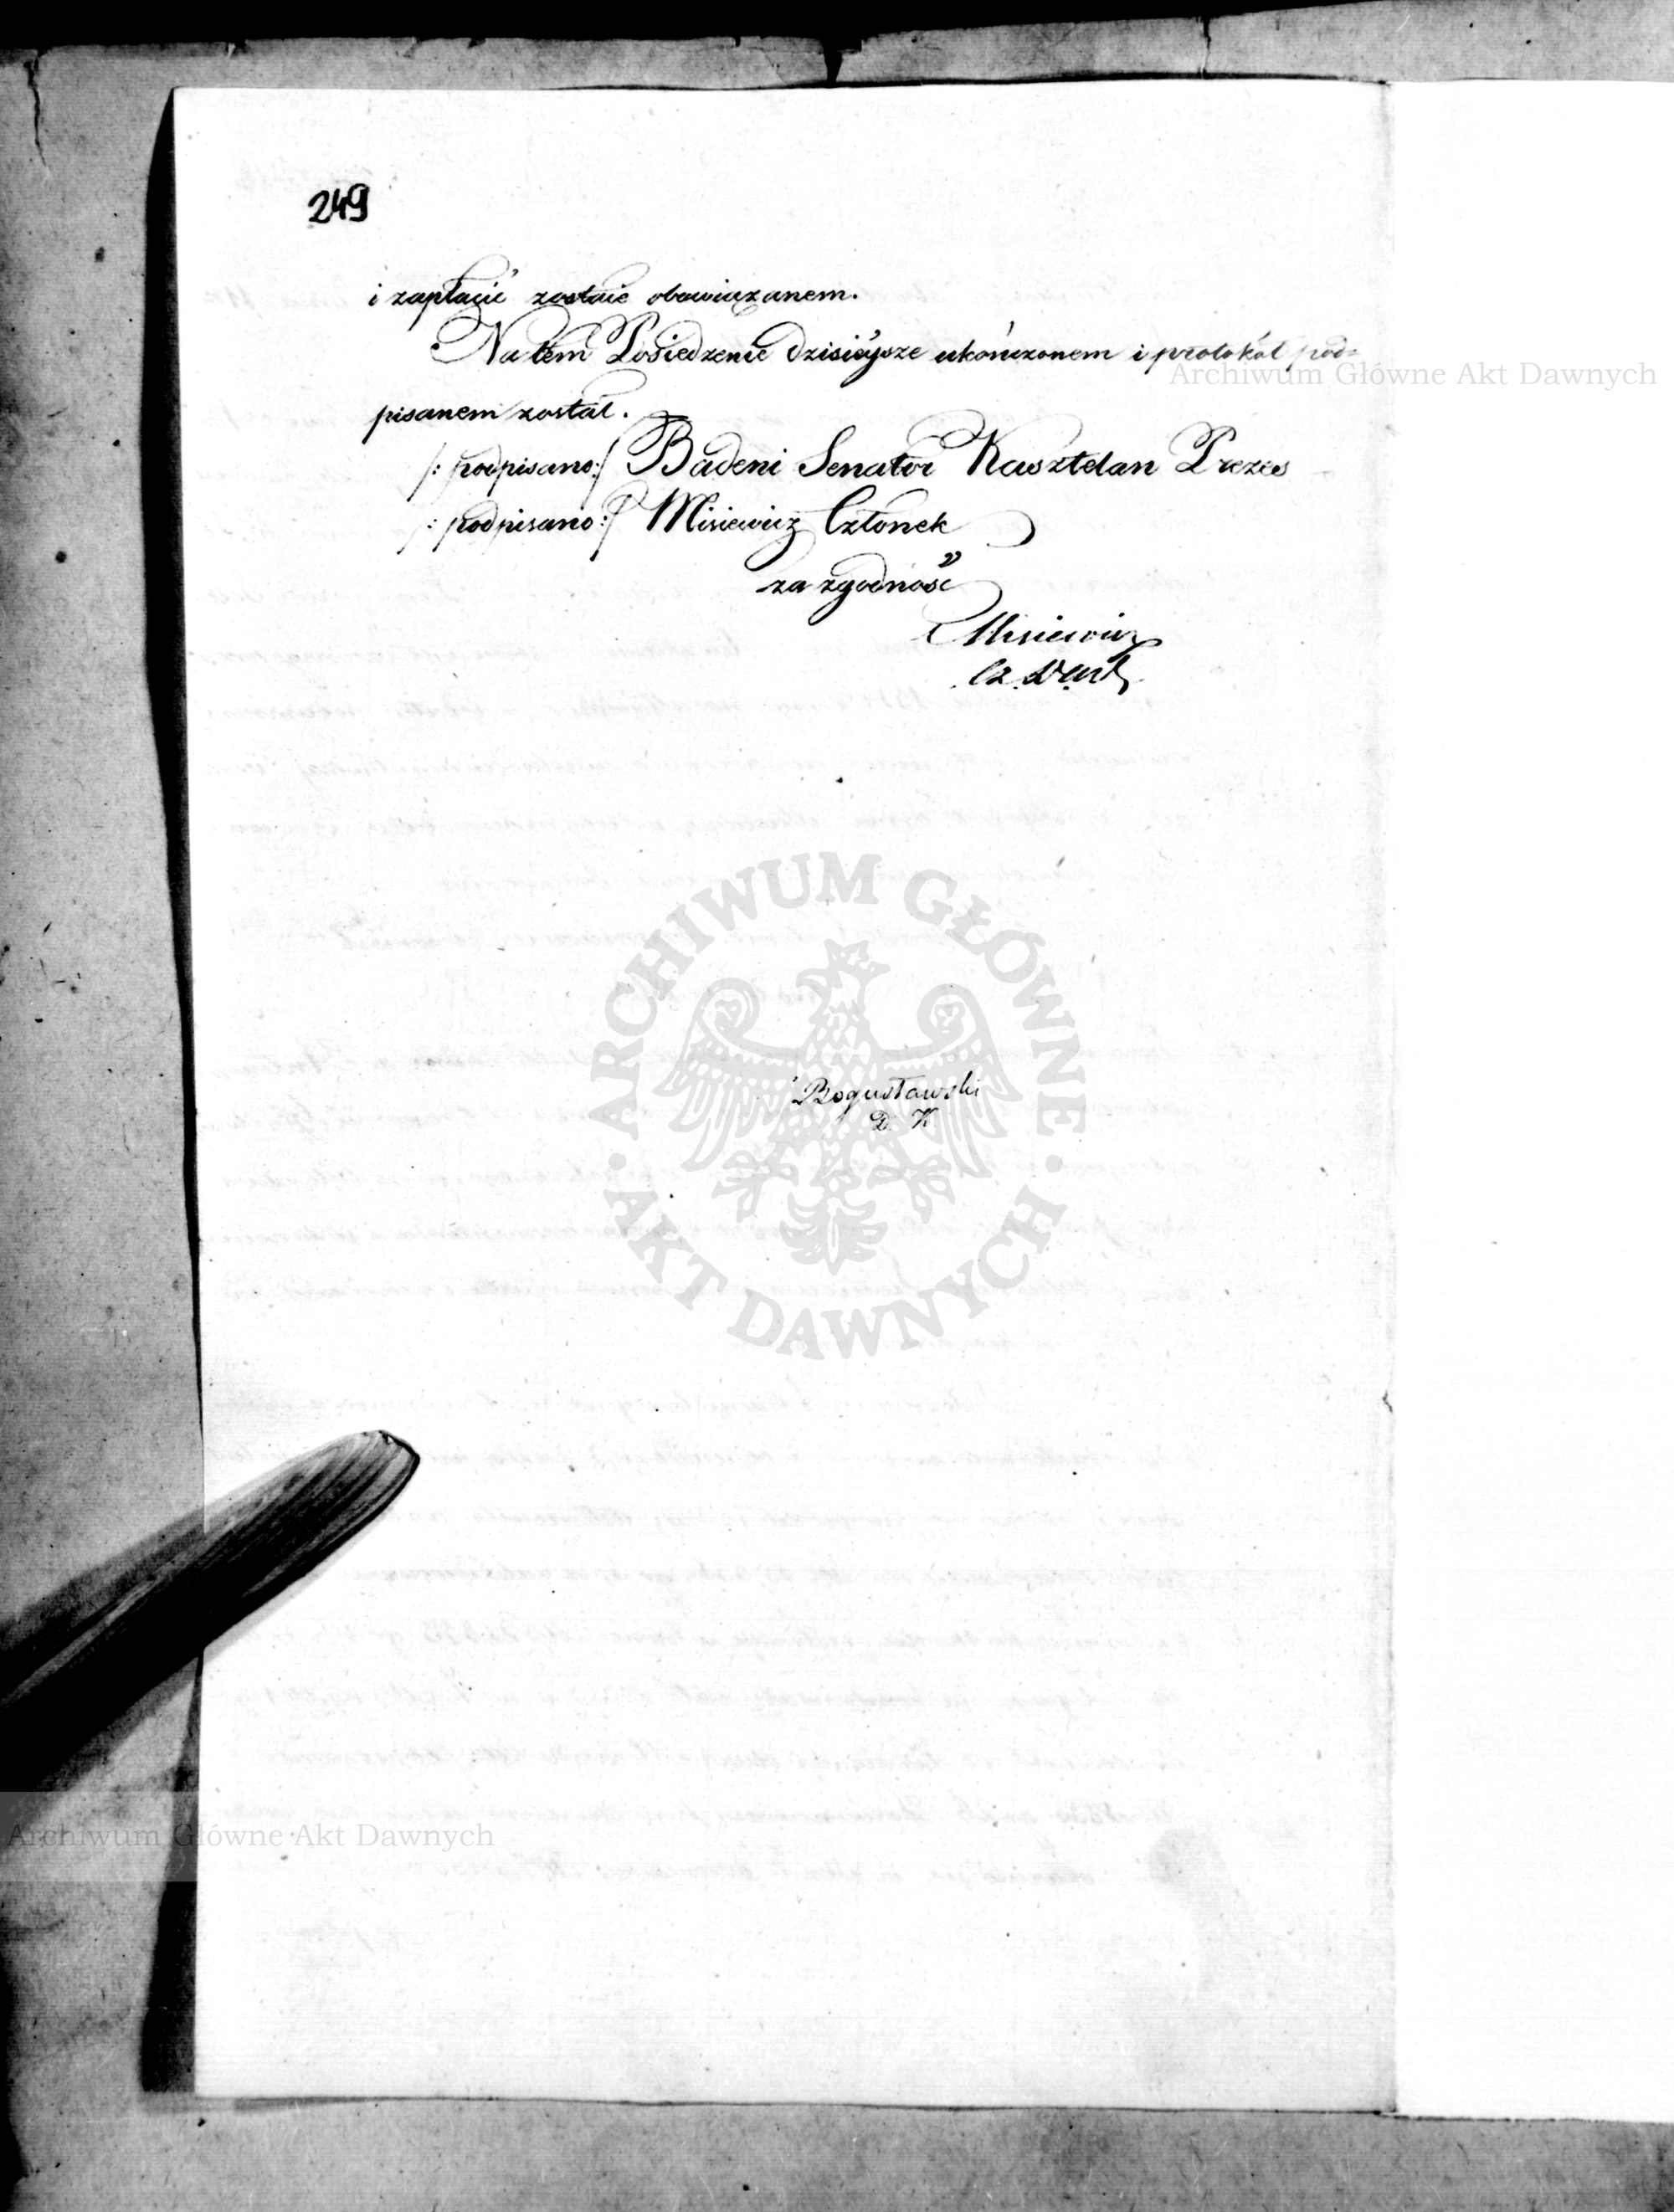 249
i zapłacić zostaie obowiązanem.
Na tém Posiedzenie dzisieysze ukończonem i protokół pod=
pisanem został.
/: podpisano:/ Badeni Senator Kasztelan Prezes
/: podpisano:/ Misiewicz Członek
za zgodność
Misiewicz
Bogusławski
D. K
Archiwum Główne Akt Dawnych
ARCHIWUM GŁÓWNE
AKT DAWNYCH
Archiwum Główne Akt Dawnych